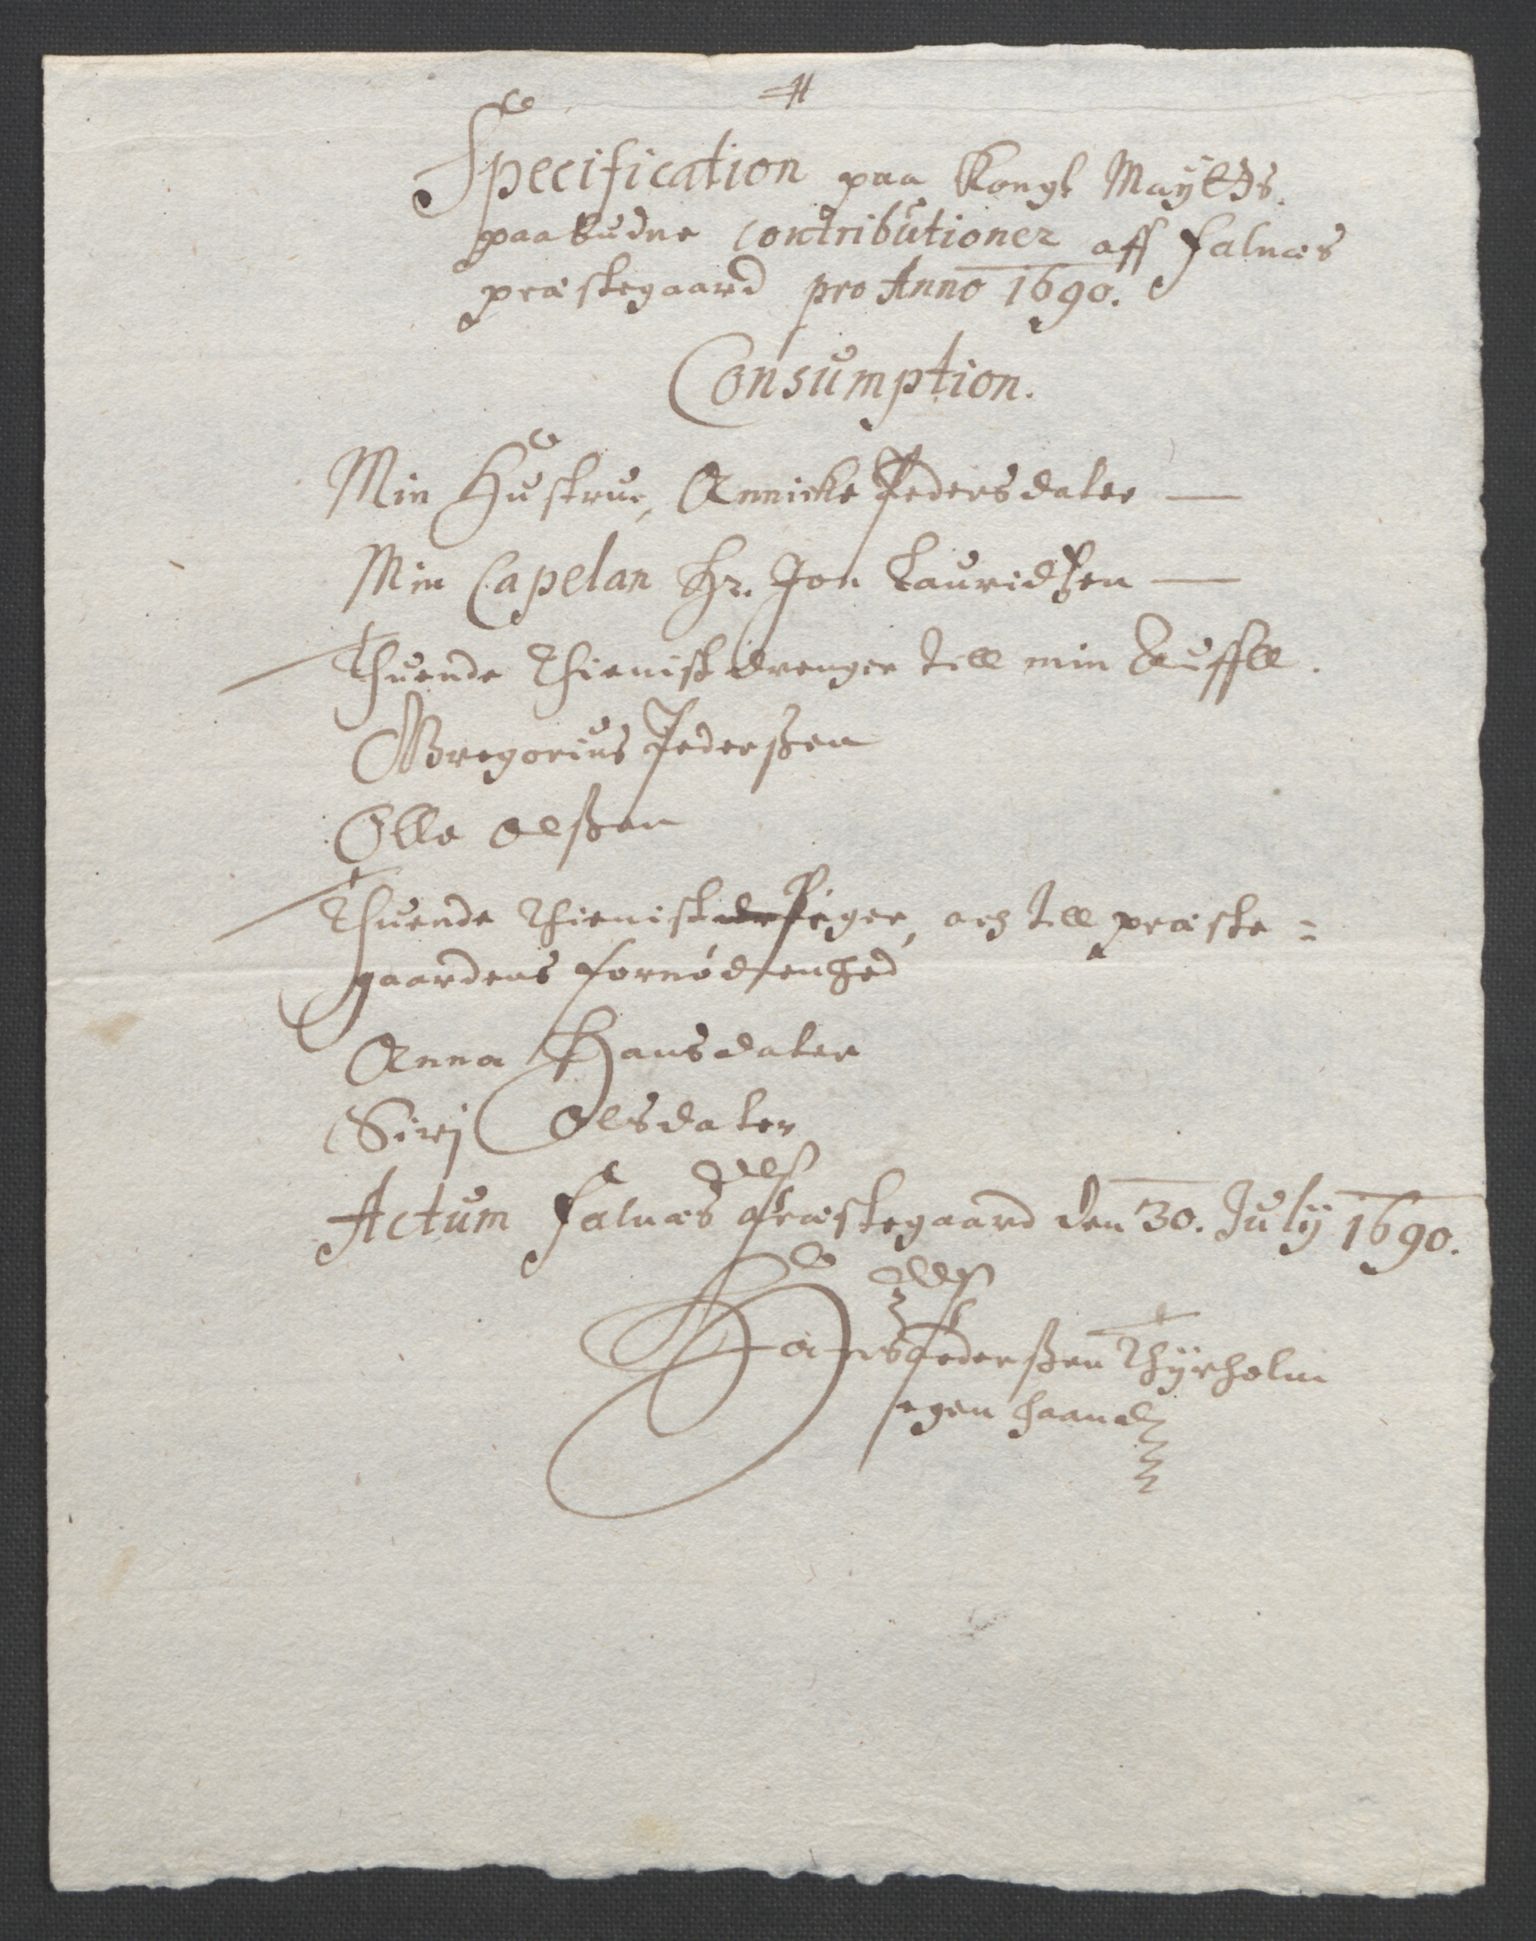 Specification paa Kongl Maÿtts.
paabudne Contributioner aff Falnæs
præstegaard pro Anno 1690.
Consumption.
Min Hustrue, Annicke Pedersdater
Min Capelan Hr. Jon Lauridsen
Thuende Thieniste drenge till min
Gregorius Pederßen
Olle Olßen
Thuende Thieniste Piger, och till præste-
gaardens fornødenhed
Anna Hansdater
Sirj Olsdater
Actum Falnæs Præstegaard den 30. Julÿ 1690.
Hans Pederßen Thÿrholm
egen haand